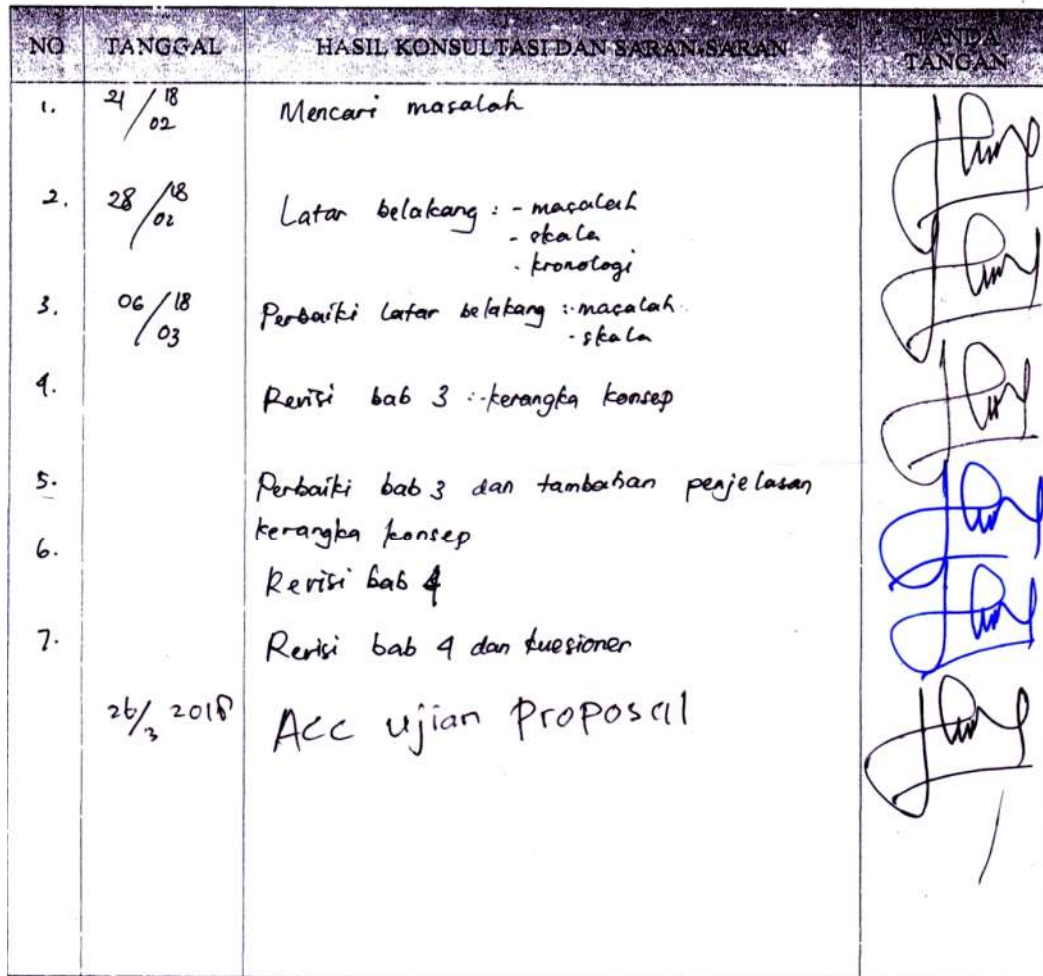 NO TANGGAL HASIL KONSULTASI DAN SARAN-SARAN TANDA TANGAN
1. 21/02 18 Mencari masalah
2. 28/02 18 Latar belakang : - masalah
- skala
- kronologi
3. 06/03 18 Perbaiki latar belakang : - masalah
- skala
4. Revisi bab 3 : - kerangka konsep
5. Perbaiki bab 3 dan tambahan penjelasan
kerangka konsep
6. Revisi bab 4
7. Revisi bab 4 dan kuesioner
26/3 2018 Acc ujian Proposal